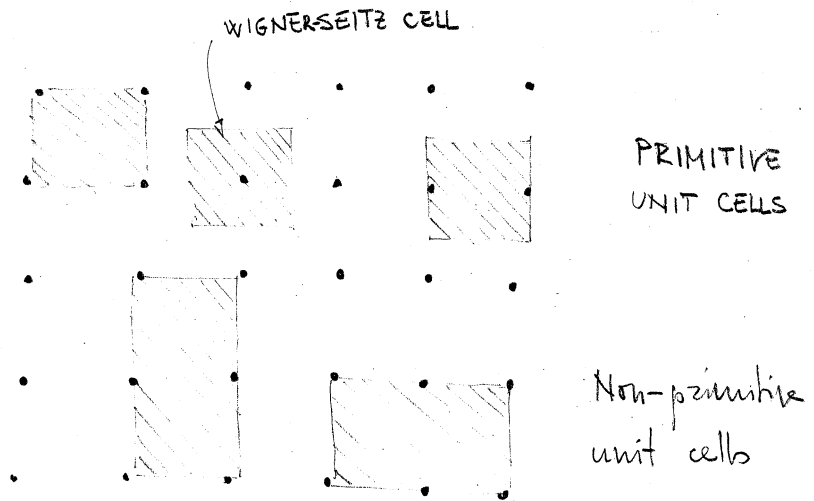 WIGNER-SEITZ CELL
PRIMITIVE
UNIT CELLS
Non-primitive
unit cells